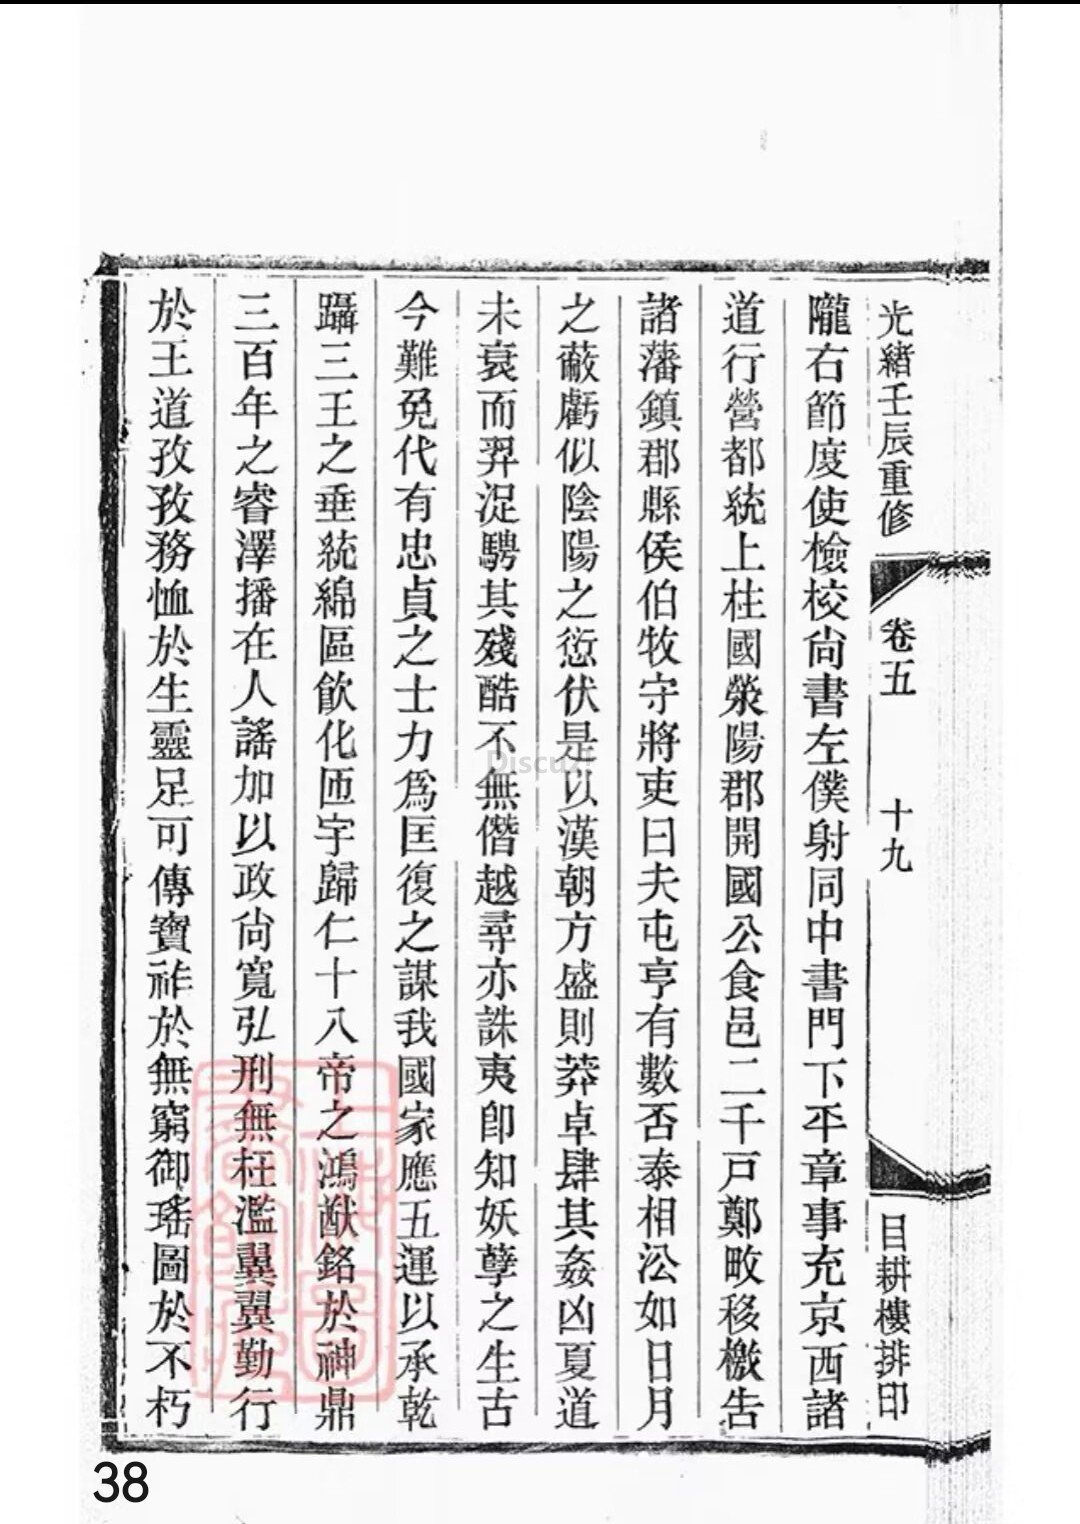 光緒壬辰重修
卷五
十九
目耕樓排印
隴右節度使檢校尙書左僕射同中書門下平章事充京西諸
道行營都統上柱國滎陽郡開國公食邑二千戸鄭畋移檄告
諸藩鎮郡縣侯伯牧守將吏曰夫屯亨有數否泰相沿如日月
之蔽虧似陰陽之愆伏是以漢朝方盛則莽卓肆其姦凶夏道
未衰而羿浞騁其殘酷不無僭越尋亦誅夷卽知妖孽之生古
今難免代有忠貞之士力爲匡復之謀我國家應五運以承乾
躡三王之垂統綿區飮化匝宇歸仁十八帝之鴻猷銘於神鼎
三百年之睿澤播在人謠加以政尙寬弘刑無枉濫翼翼勤行
於王道孜孜務恤於生靈足可傳寶祚於無窮御瑤圖於不朽
上海圖書館藏
Discuz!
38